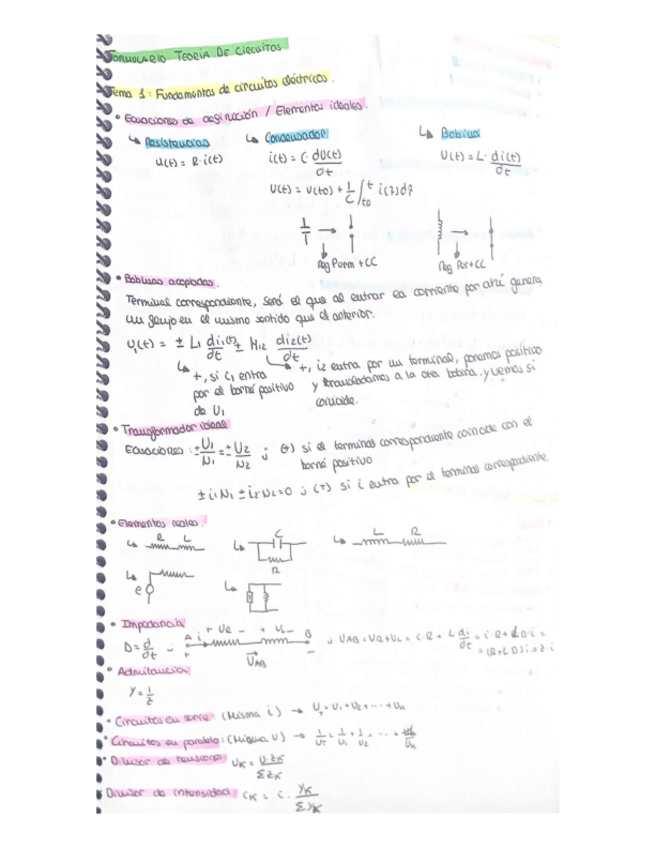 FORMULARIO TEORÍA DE CIRCUITOS
Tema 1: Fundamentos de circuitos eléctricos.
• Ecuaciones de definición / Elementos ideales.
↳ Resistencias ↳ Condensador ↳ Bobina
u(t) = R · i(t) i(t) = C · dU(t)/dt U(t) = L · di(t)/dt
U(t) = U(t0) + 1/C ∫t0^t i(z)dz
Reg Perm + CC Reg Per + CC
• Bobinas acopladas.
Terminal correspondiente, será el que al entrar la corriente por ahí genera
un flujo en el mismo sentido que el anterior.
U1(t) = ± L1 di1(t)/dt ± M12 di2(t)/dt
↳ +, si i1 entra ↳ +, i2 entra por un terminal, ponemos positivo
por el borne positivo y trasladamos a la otra bobina, y vemos si
de U1 coincide.
• Transformador ideal
Ecuaciones: ±U1/N1 = ±U2/N2 ; (+) si el terminal correspondiente coincide con el
borne positivo
± i1N1 ± i2N2 = 0 ; (+) si i entra por el terminal correspondiente
• Elementos reales.
↳ R L ↳ C R ↳ L R
↳ e ↳
• Impedancia
D = d/dt ; A i + UR - + UL - B ; UAB = UR + UL = i·R + L di/dt = i·R + LD·i =
+ UAB - = (R+LD)i = z·i
• Admitancia
Y = 1/z
• Circuitos en serie: (Misma i) → UT = U1 + U2 + ... + Un
• Circuitos en paralelo: (Misma U) → 1/UT = 1/U1 + 1/U2 ... + 1/Un
• Divisor de tensiones UK = U·ZK/ΣZK
Divisor de intensidad iK = i · YK/ΣYK